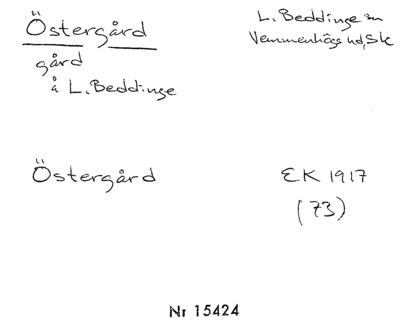 Östergård
gård
å L. Beddinge
L. Beddinge sn
Vemmenhögs hd, Sk
Östergård
EK 1917
(73)
Nr 15424